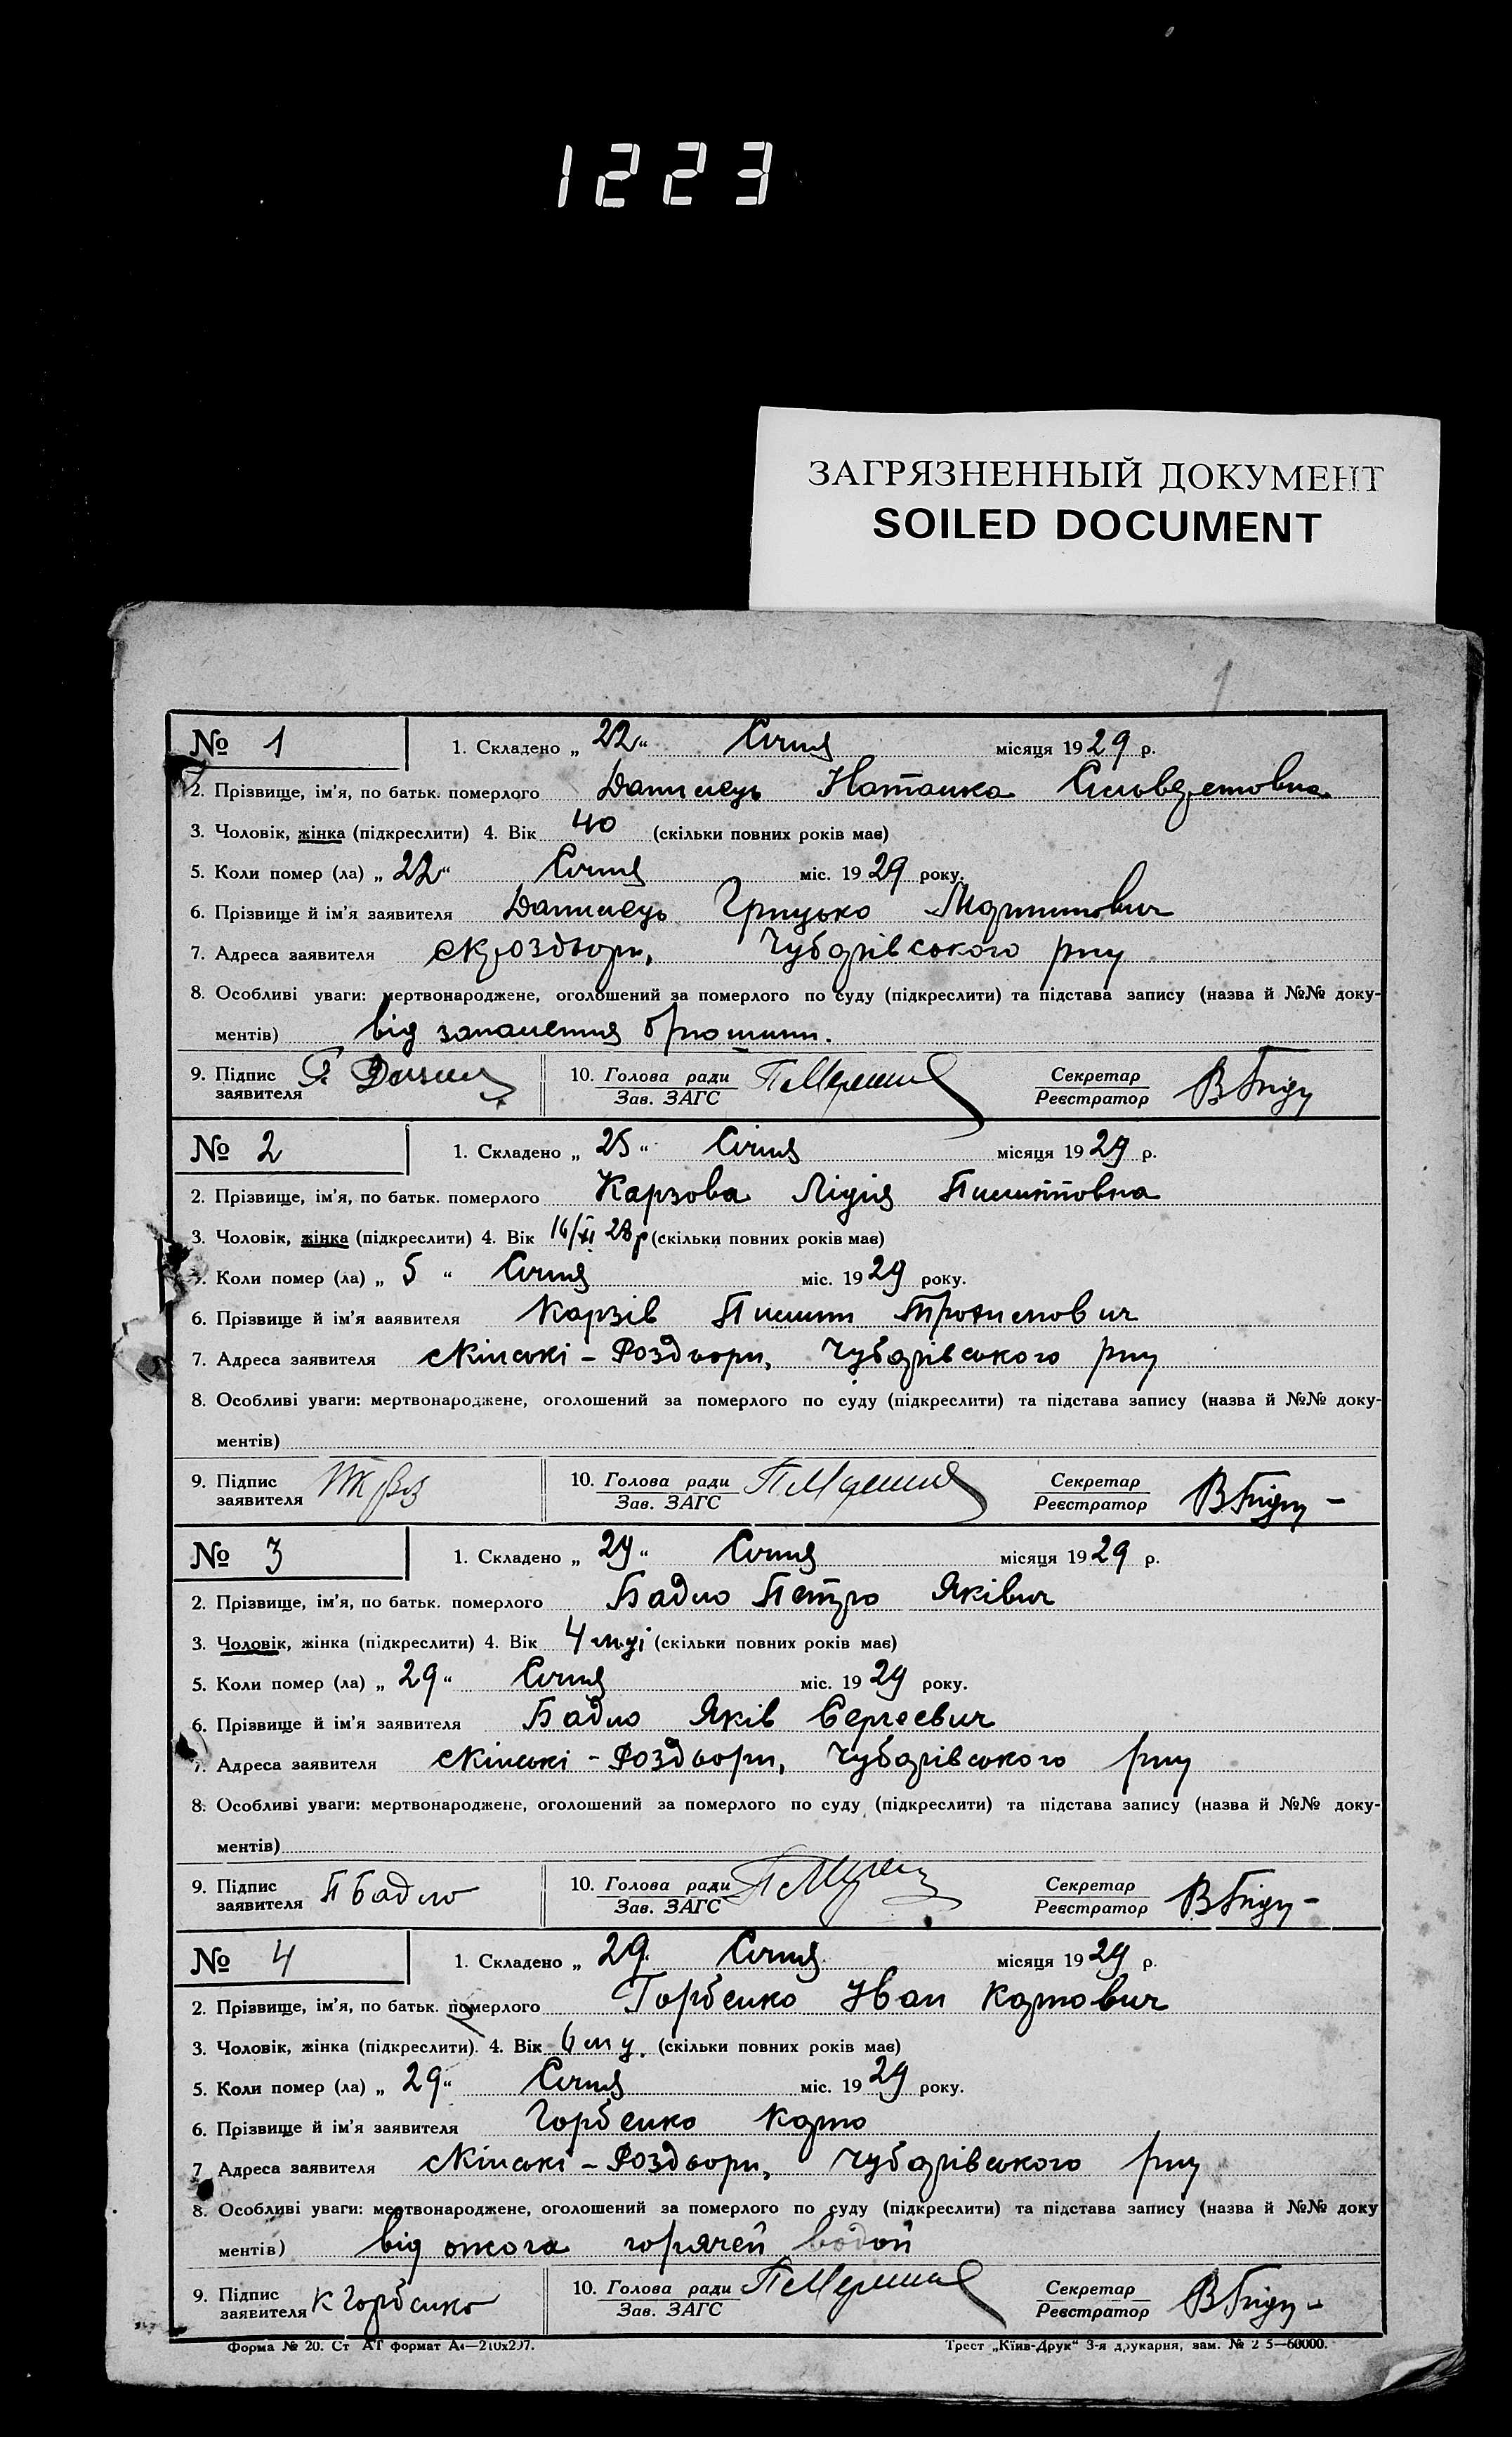 1223
ЗАГРЯЗНЕННЫЙ ДОКУМЕНТ
SOILED DOCUMENT
1
№ 1 1. Складено „ 22 “ Січня місяця 1929 р.
2. Прізвище, ім'я, по батьк. померлого Наталка
3. Чоловік, жінка (підкреслити) 4. Вік 40 (скільки повних років має)
5. Коли помер (ла) „ 22 “ Січня міс. 1929 року.
6. Прізвище й ім'я заявителя Грицько Мартинович
7. Адреса заявителя Чубарівського р-ну
8. Особливі уваги: мертвонароджене, оголошений за померлого по суду (підкреслити) та підстава запису (назва й №№ доку-
ментів) від запалення брюшини.
9. Підпис заявителя 10. Голова ради Зав. ЗАГС Секретар Реєстратор
№ 2 1. Складено „ 25 “ Січня місяця 1929 р.
2. Прізвище, ім'я, по батьк. померлого Карзова Лідія Пилиповна
3. Чоловік, жінка (підкреслити) 4. Вік 16/XI 28р (скільки повних років має)
5. Коли помер (ла) „ 5 “ Січня міс. 1929 року.
6. Прізвище й ім'я заявителя Карзів Пилип Трохимович
7. Адреса заявителя Кінські-Роздори, Чубарівського р-ну
8. Особливі уваги: мертвонароджене, оголошений за померлого по суду (підкреслити) та підстава запису (назва й №№ доку-
ментів)
9. Підпис заявителя 10. Голова ради Зав. ЗАГС Секретар Реєстратор
№ 3 1. Складено „ 29 “ Січня місяця 1929 р.
2. Прізвище, ім'я, по батьк. померлого Бадло Петро Яківич
3. Чоловік, жінка (підкреслити) 4. Вік 4 м-ці (скільки повних років має)
5. Коли помер (ла) „ 29 “ Січня міс. 1929 року.
6. Прізвище й ім'я заявителя Бадло Яків Сергеевич
7. Адреса заявителя Кінські-Роздори, Чубарівського р-ну
8. Особливі уваги: мертвонароджене, оголошений за померлого по суду (підкреслити) та підстава запису (назва й №№ доку-
ментів)
9. Підпис заявителя П Бадло 10. Голова ради Зав. ЗАГС Секретар Реєстратор
№ 4 1. Складено „ 29 “ Січня місяця 1929 р.
2. Прізвище, ім'я, по батьк. померлого Горбенко Иван Карпович
3. Чоловік, жінка (підкреслити). 4. Вік 6 м ц. (скільки повних років має)
5. Коли помер (ла) „ 29 “ Січня міс. 1929 року.
6. Прізвище й ім'я заявителя Горбенко Карпо
7 Адреса заявителя Кінські-Роздори, Чубарівського р-ну
8. Особливі уваги: мертвонароджене, оголошений за померлого по суду (підкреслити) та підстава запису (назва й №№ доку
ментів) від ожога горячей водой
9. Підпис заявителя К Горбенко 10. Голова ради Зав. ЗАГС Секретар Реєстратор
Форма № 20. Ст АТ формат А4—210х297. Трест „Київ-Друк“ 3-я друкарня, зам. № 2 5—60000.